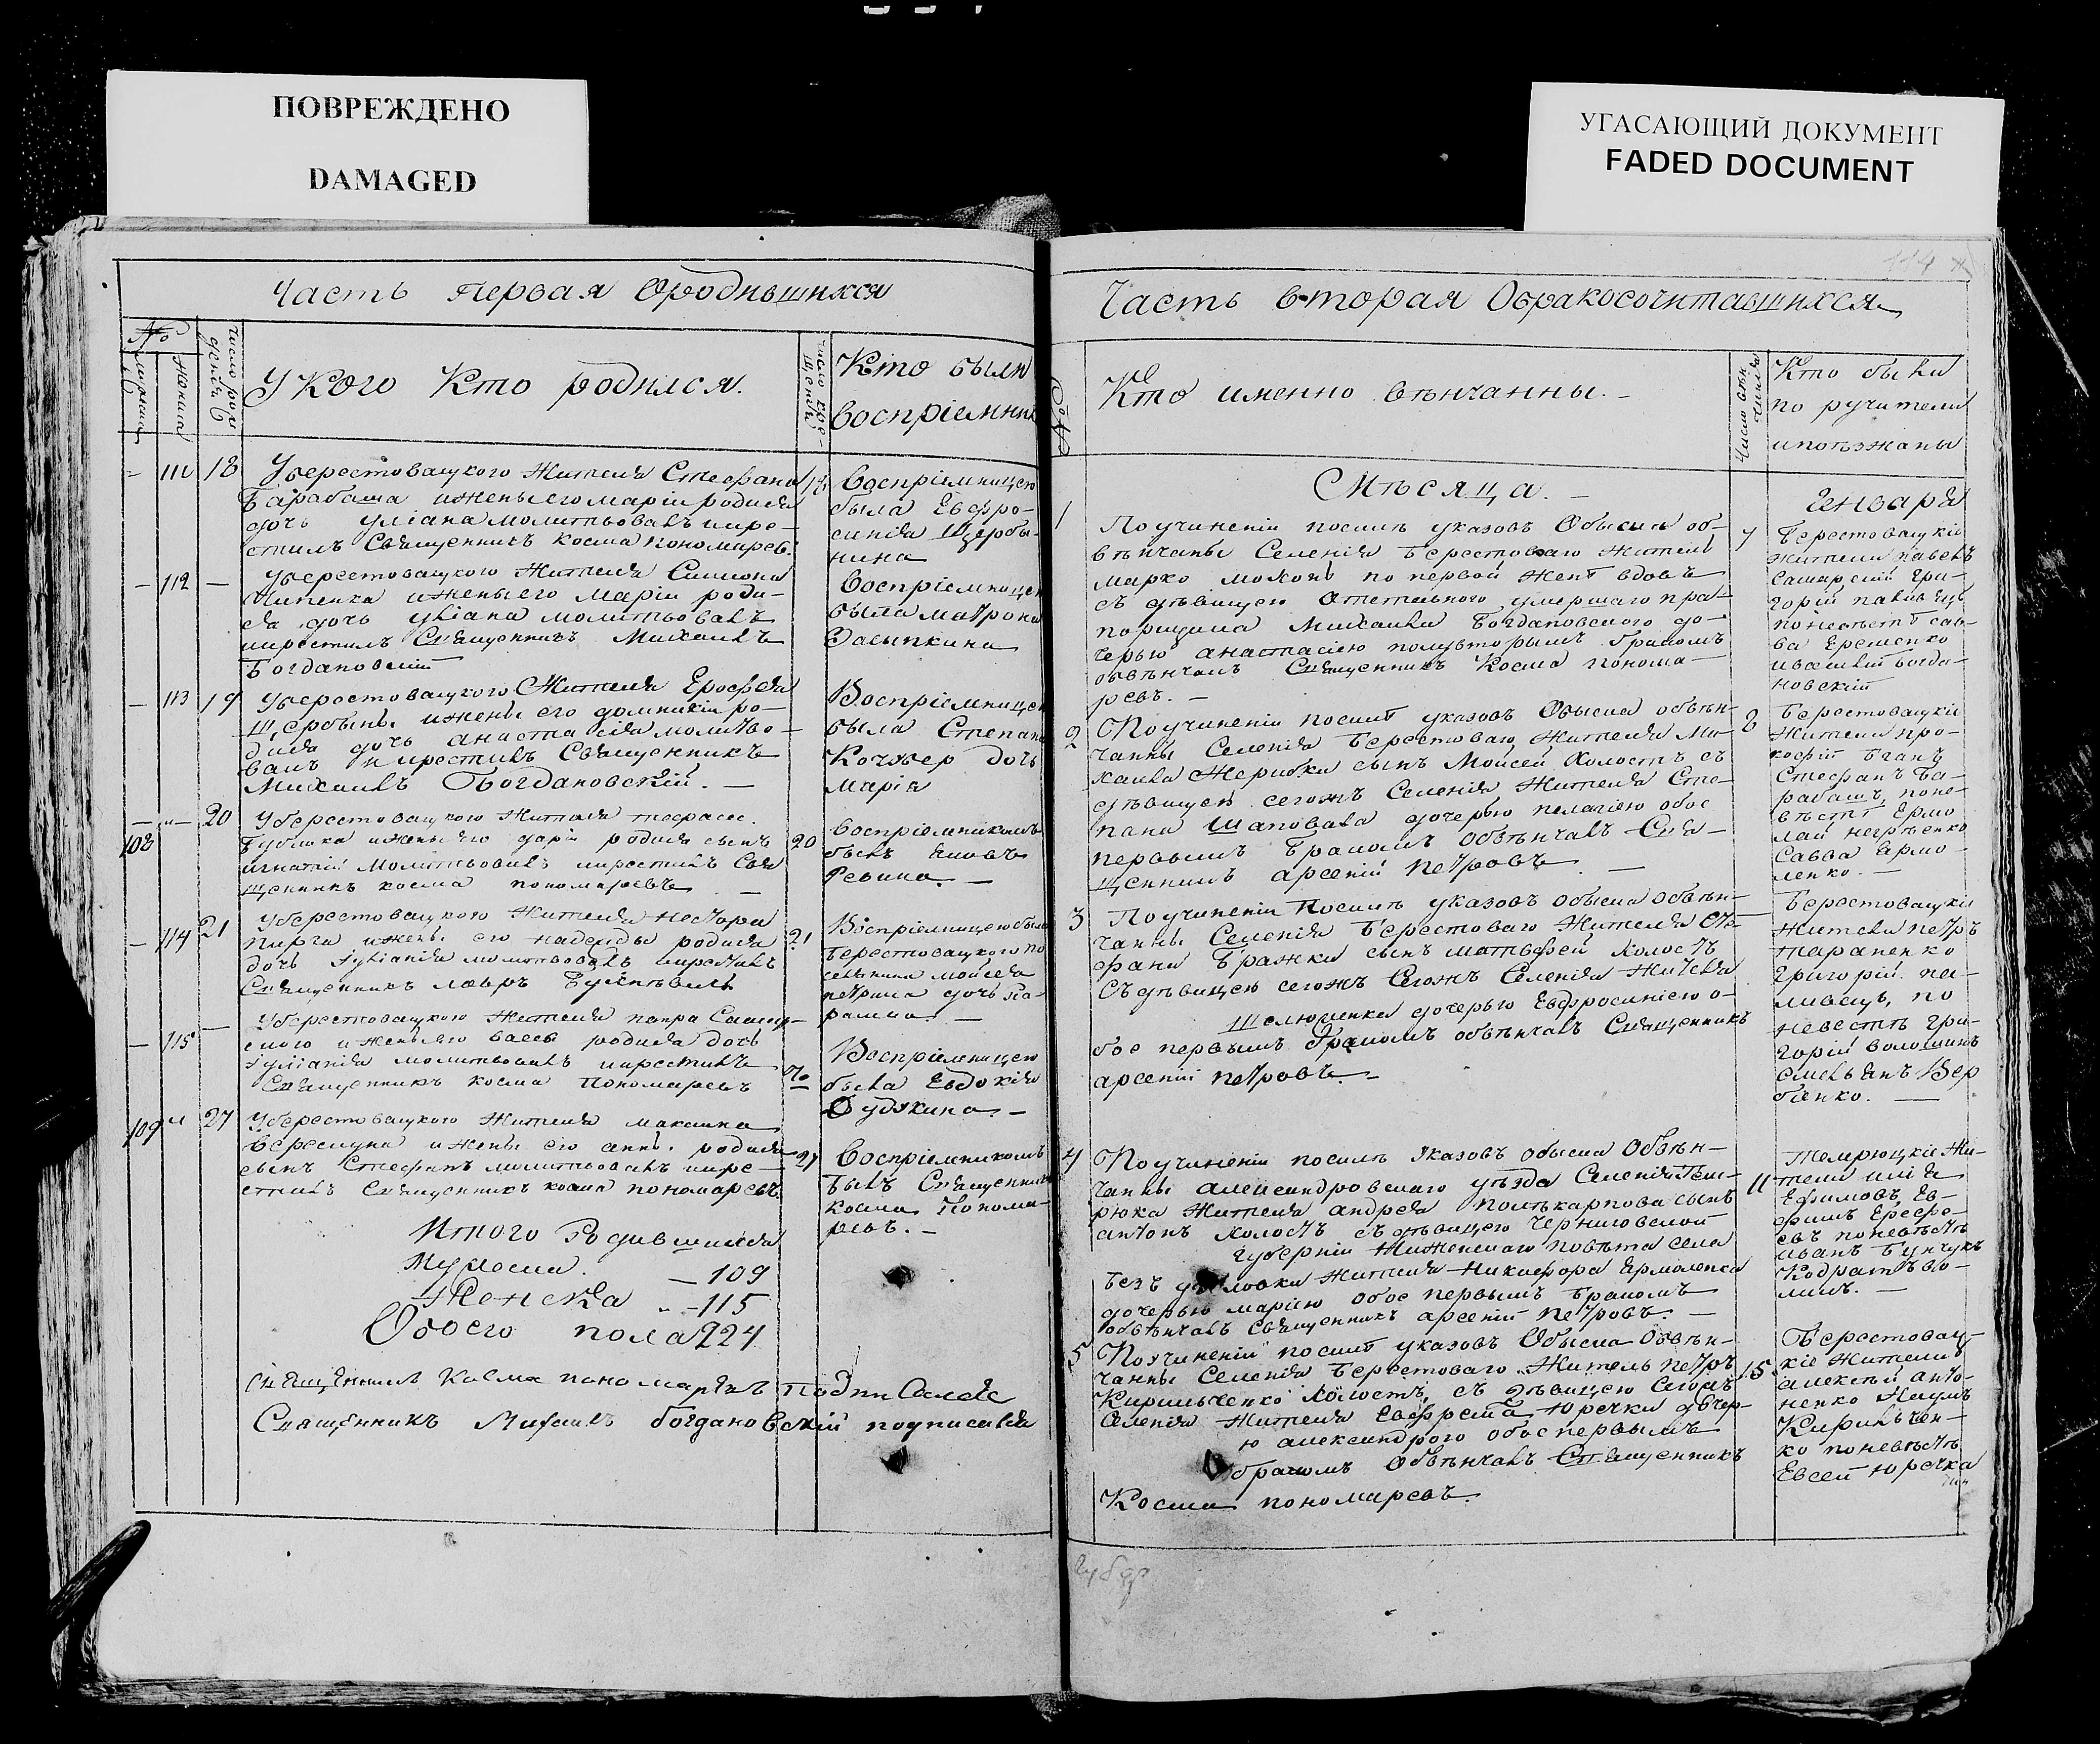 ПОВРЕЖДЕНО
DAMAGED
УГАСАЮЩИЙ ДОКУМЕНТ
FADED DOCUMENT
Часть первая Ородившихся
№
Женска
У Кого Кто родился.
Кто были
воспріемник
111 18 Уберестовацкого Жителя Стефана
Барабаша иженыегомаріи родися
дочь уліана молитвовалъ икре-
стилъ Священникъ косма пономарев.
Воспріемницею
была Евфро-
синія Щербы-
нина
— 112 — Уберестовацкого Жителя Симиона
иженыего Маріи роди-
ся дочь уліана молитвовалъ
икрестилъ Священникъ Михаилъ
Богдановскій
воспріемницею
была матрона
Засыпкина
— 113 19 Уберестовацкого Жителя Ерофея
Щербыны ижены его домникіи ро-
дися дочь анастасія молитво-
валъ и крестилъ Священникъ
Михаилъ Богдановскій. —
Воспріемницею
была Степана
Кочубер дочь
марія
108 20 Уберестовацкого Жителя
ижены его даріи родися сынъ
игнатій молитвовалъ икрестилъ Свя
щенникъ косма пономаревъ —
20
воспріемникомъ
былъ яковъ
Ревина. —
— 114 21 Уберестовацкого Жителя Нестора
Пирга ижены его надежды родися
дочь іуліанія молитвовалъ икрестилъ
Священникъ лавръ
21
Воспріемницею была
берестовацкого по
селянина моисея
петрика дочь Па-
— 115 — Уберестовацкого Жителя
иженыего родися дочь
іуліанія молитвовалъ икрестилъ
Священникъ косма Пономаревъ
Воспріемницею
была Евдокія
Дудкина. —
109 27 Уберестовацкого Жителя максима
ижены его анны родися
сынъ Стефанъ молитвовалъ икре-
стилъ Священникъ косма пономаревъ.
27
Воспріемникомъ
былъ Священникъ
косма Понома-
ревъ. —
Итого Родившихся
Мужеска. — 109
Женска — 115
Обоего пола 224
Священникъ Косма пономаревъ подписался
Священникъ Михаилъ богдановскій подписался
114
Часть вторая Обракосочитавшихся
№
Кто именно вѣнчанны. —
Кто были
по ручители
ипоѣзжаны
Мѣсяца. — Генваря
1 Поучиненіи посилѣ указовъ Обыска об-
вѣнчаны Селенія Берестоваго Житель
марко мохонь по первой женѣ вдовъ
съ дѣвицею умершаго пра-
порщика Михаила Богдановского до-
черью анастасіею полувторымъ бракомъ
обвѣнчалъ Священникъ Косма понома-
ревъ. —
7
Берестовацкіе
жители павелъ
Самарскій Гри-
горій
поневѣстѣ сав-
ва Еременко
богда-
новскій
2 Поучиненіи посилѣ указовъ Обыска обвѣн-
чанны Селенія Берестоваго Жителя Ми-
хаила Жерибки сынъ Моисей Холостъ съ
дѣвицею сегожъ Селенія Жителя Сте-
пана Шаповала дочерью пелагіею обое
первымъ Бракомъ Обвѣнчалъ Свя-
щенникъ арсеній Петровъ. —
8
Берестовацкіе
Жители про-
кофій
Стефанъ Ба-
рабашъ, поне-
вѣстѣ Ермо
лай
Савва Ермо-
ленко. —
3 Поучиненіи Посилѣ указовъ обыска обвѣн-
чанны Селенія Берестоваго Жителя Сте-
фана Бражки сынъ матвфей Холостъ
Съ дѣвицею сегожъ Сегожъ Селенія Жителя
Шелюменка дочерью Евфросиніею о-
бое первымъ бракомъ обвѣнчалъ Священникъ
арсеній петровъ. —
Берестовацкіе
жители петръ
тараненко
григорій па-
ливацъ, по
невестѣ Гри-
горій волошинъ
емельянъ Вер
бенко. —
4 Поучиненіи посилѣ Указовъ обыска Обвѣн-
чанны александровскаго уѣзда Селенія Тем-
рюка Жителя андрея Поликарпова сынъ
антонъ Холостъ съ дѣвицею Черниговской
Губерніи Повѣта села
Жителя Никифора Ермоленка
дочерью маріею обое первымъ Бракомъ
обвѣнчалъ Священникъ арсеній Петровъ. —
11
Темрюцкіе Жи-
тели илія
Ефимовъ, Ев-
фимъ Ерефе-
евъ поневѣстѣ
иванъ Бунчукъ
Кодратъ во-
ликъ. —
5 Поучиненіи посилѣ указовъ Обыска Обвѣн-
чанны Селенія Берестоваго Житель петръ
Кирильченко Холостъ, съ дѣвицею Сегожъ
Селенія Жителя Евфрема Юречки дочер-
ю александрою обое первымъ
бракомъ Обвѣнчалъ Священникъ
Косма пономаревъ.
15.
Берестовац-
кіе Жители
алексѣй анто-
ненко Наумъ
Кирильчен-
ко поневѣстѣ
Евсей Юречка